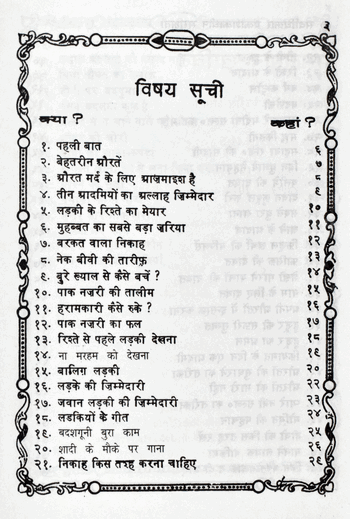 ३
विषय सूची
क्या ? कहां ?
१. पहली बात ६
२. बेहतरीन औरतें ७
३. औरत मर्द के लिए आज़माइश है ८
४. तीन आदमियों का अल्लाह ज़िम्मेदार ९
५. लड़की के रिश्ते का मेयार १०
६. मुहब्बत का सबसे बड़ा ज़रिया ११
७. बरकत वाला निकाह १२
८. नेक बीवी की तारीफ़ १३
९. बुरे ख़्याल से कैसे बचें ? १४
१०. पाक नज़री की तालीम १५
११. हरामकारी कैसे रुके ? १६
१२. पाक नज़री का फल १७
१३. रिश्ते से पहले लड़की देखना १८
१४. ना मरहम को देखना १९
१५. बालिग़ लड़की २०
१६. लड़के की ज़िम्मेदारी २२
१७. जवान लड़की की ज़िम्मेदारी २३
१८. लडकियों के गीत २४
१९. बदशगूनी बुरा काम २५
२०. शादी के मौक़े पर गाना २६
२१. निकाह किस तरह करना चाहिए २९